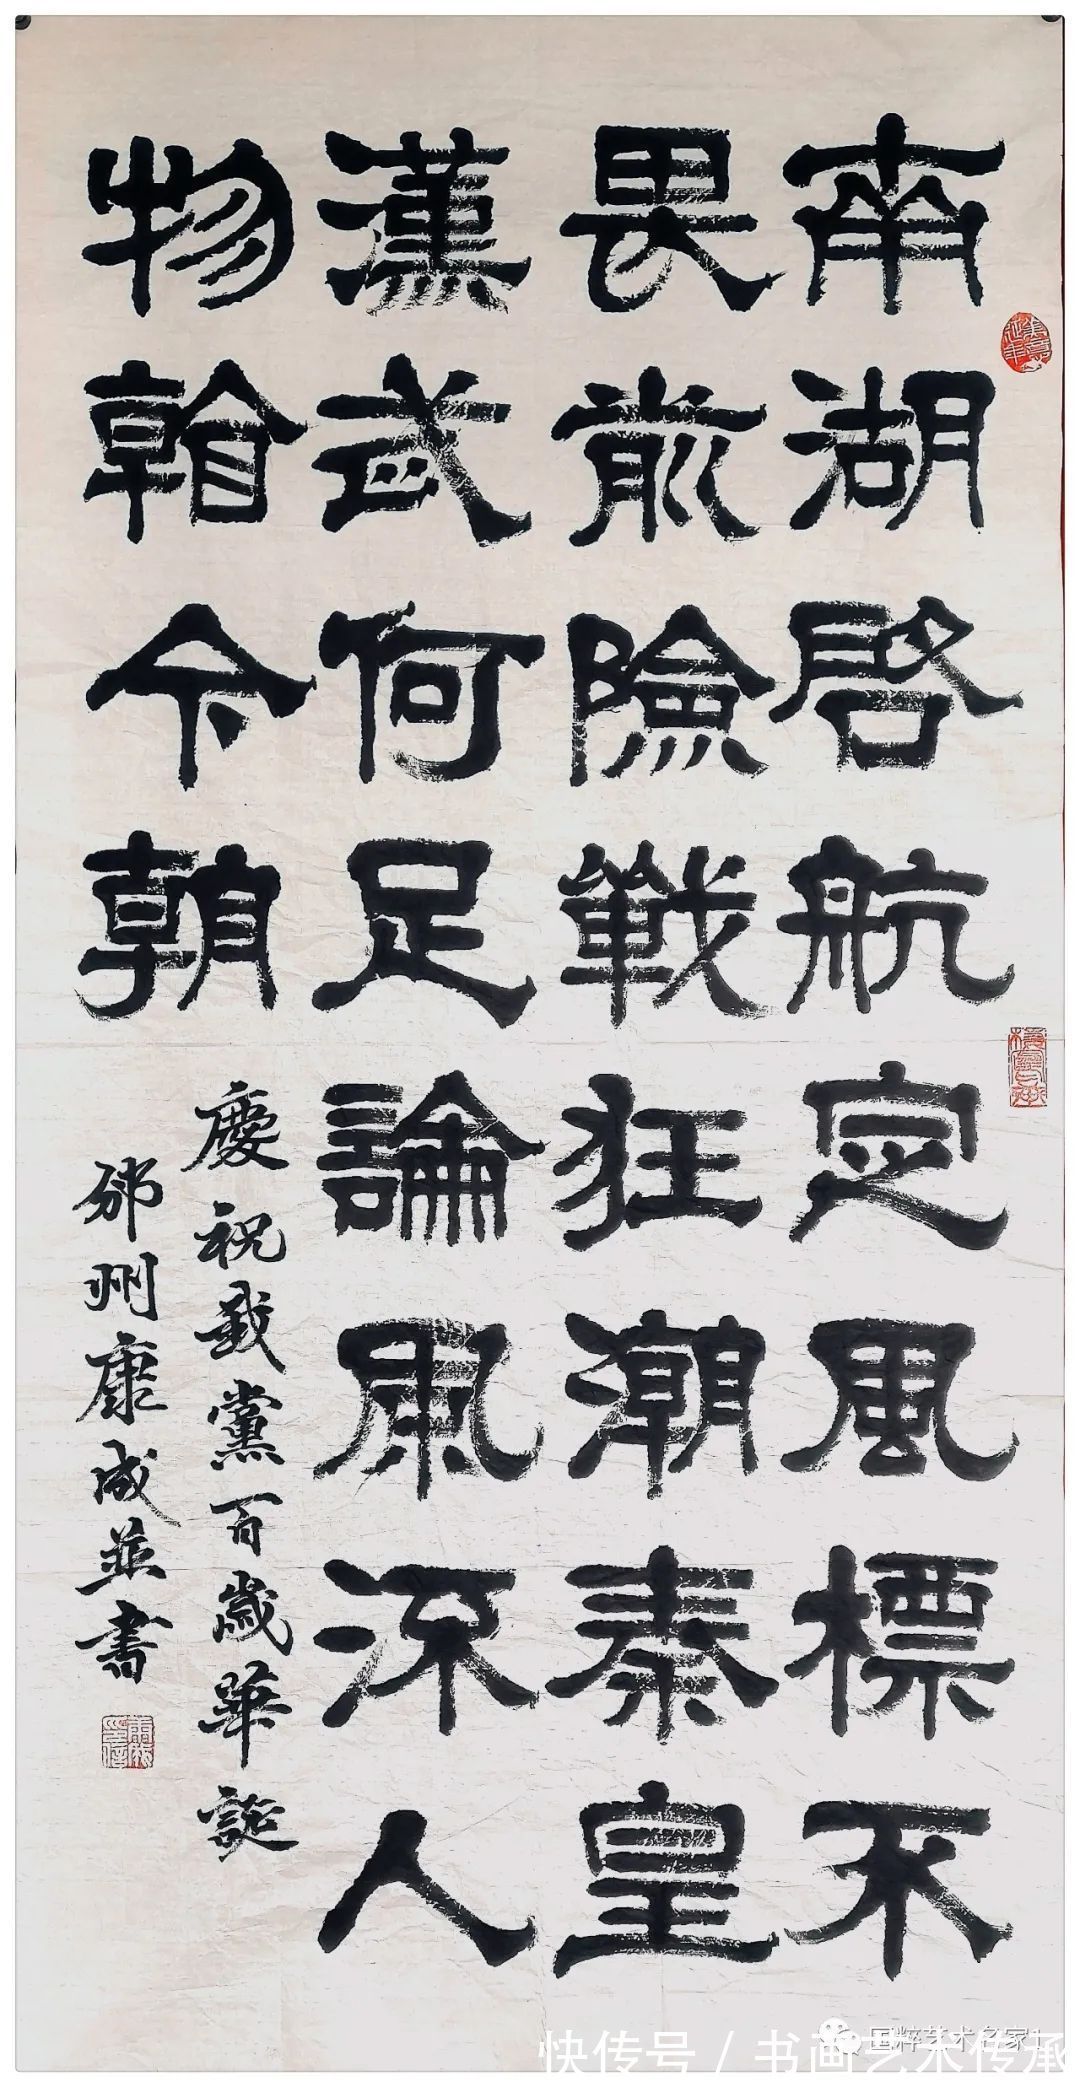 南湖啓航定風標不
畏前險戰狂潮秦皇
漢武何足論風流人
物看今朝
慶祝我黨百歲華誕
邠州康成並書
国粹艺术名家1
快传号 / 书画艺术传承